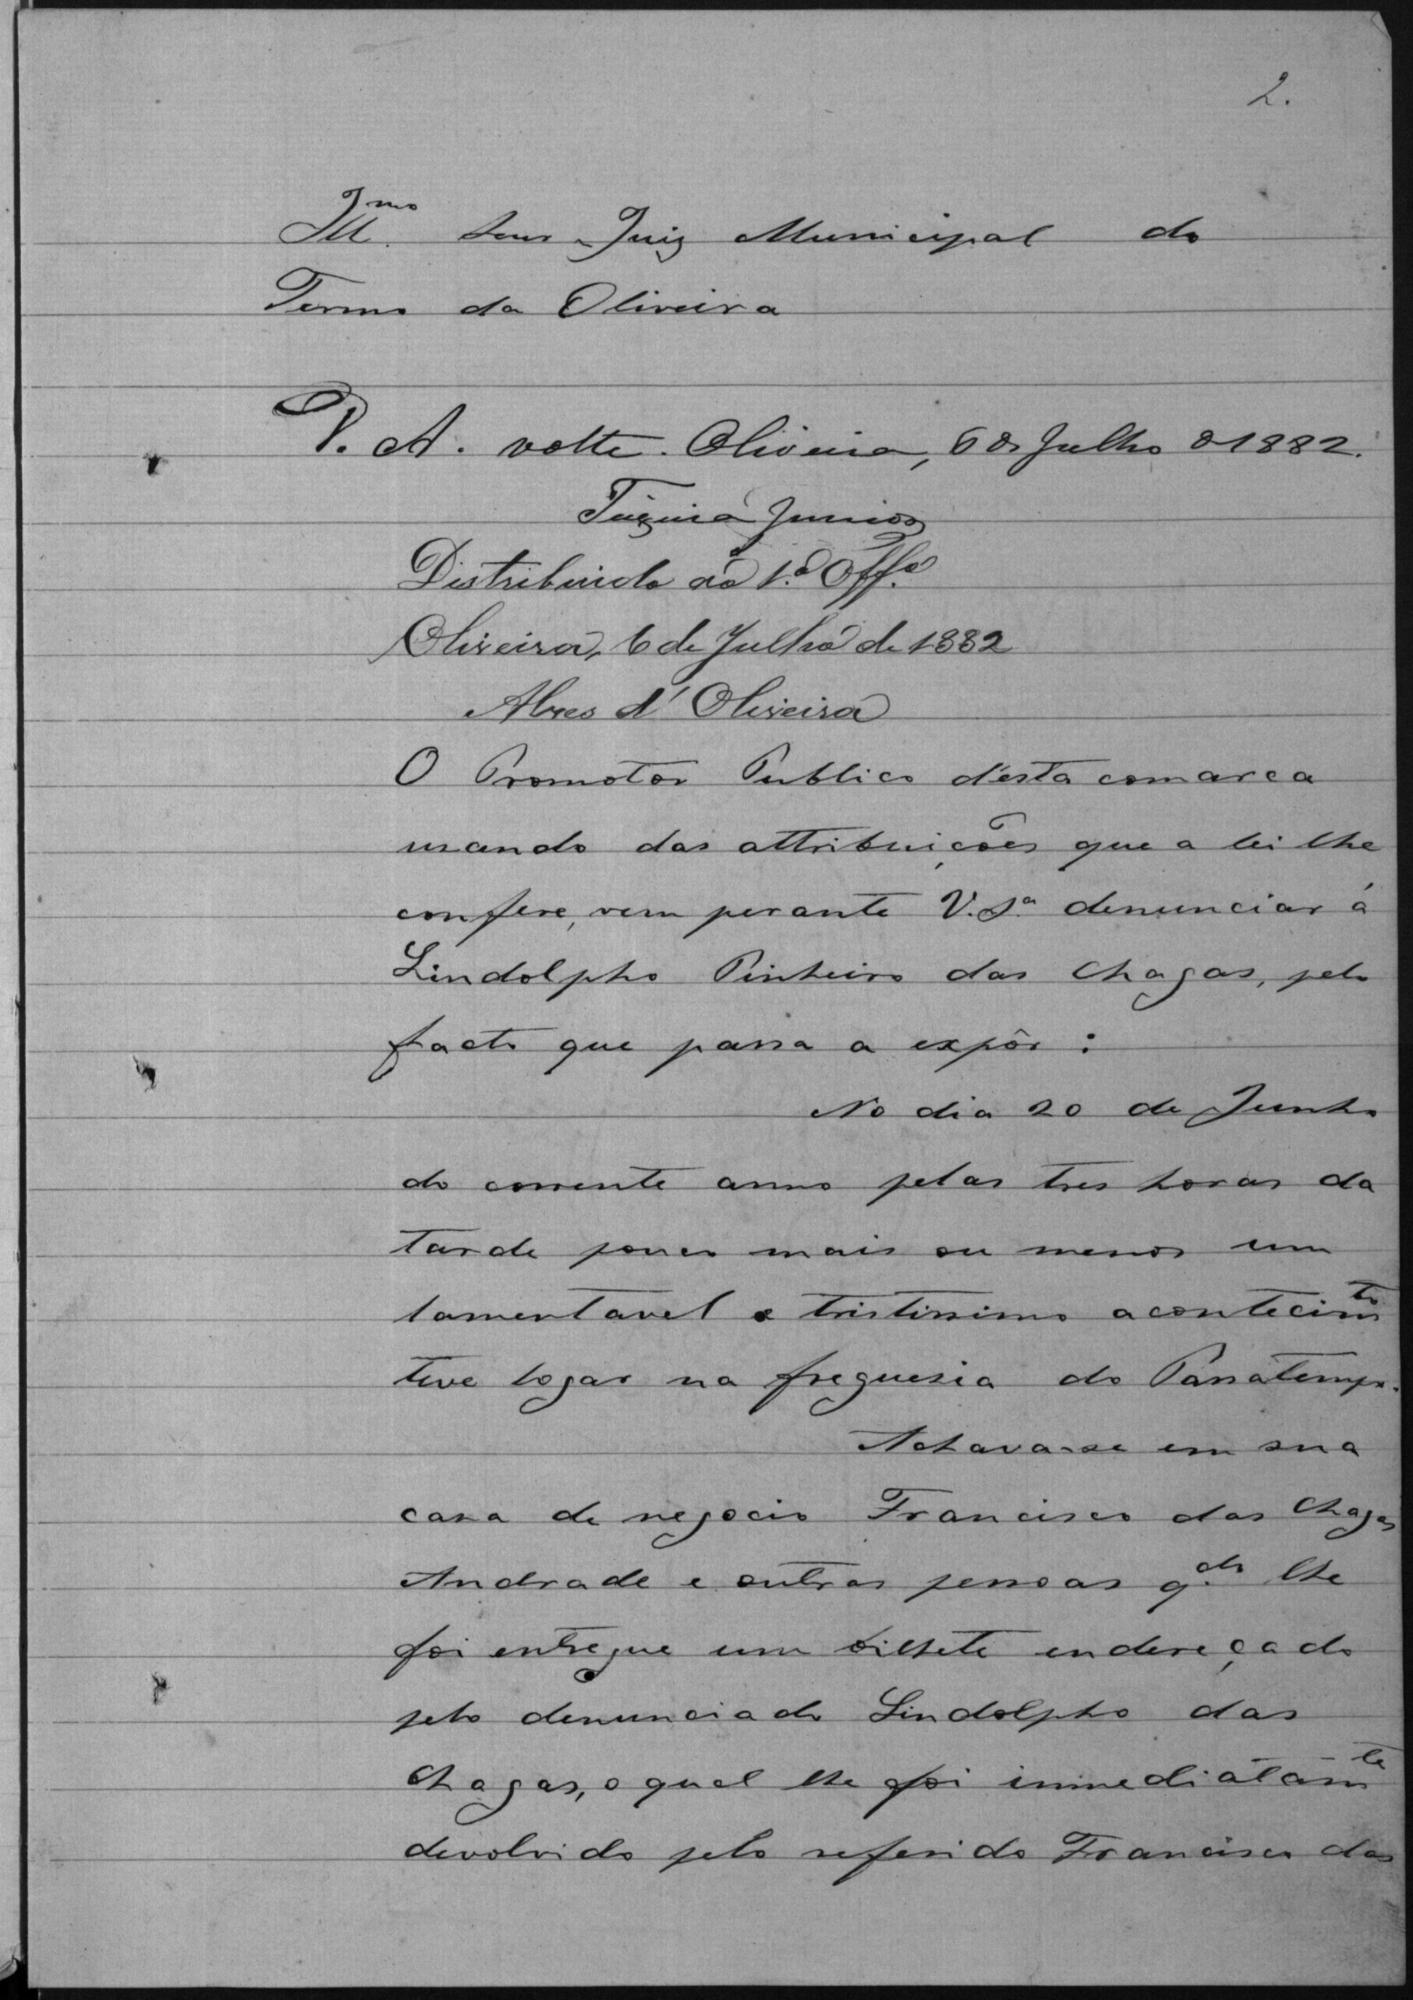 2.
Ill.mo Snr. Juiz Municipal do
Termo da Oliveira
D. A. volte. Oliveira, 6 de Julho d 1882.
Teixeira Junior
Distribuido ao 1.º Off.º
Oliveira, 6 de Julho de 1882
Alves d'Oliveira
O Promotor Publico d'esta comarca
usando das attribuições que a lei lhe
confere, vem perante V.S.ª denunciar á
Lindolpho Pinheiro das Chagas, pelo
facto que passa a expôr:
No dia 20 de Junho
do corrente anno pelas tres horas da
tarde pouco mais ou menos um
lamentavel e tristissimo acontecim.to
teve logar na freguesia do Passatempo.
Achava-se em sua
casa de negocio Francisco das Chagas
Andrade e outras pessoas q.do lhe
foi entregue um bilhete endereçado
pelo denunciado Lindolpho das
Chagas, o qual lhe foi immediatam.te
devolvido pelo referido Francisco das